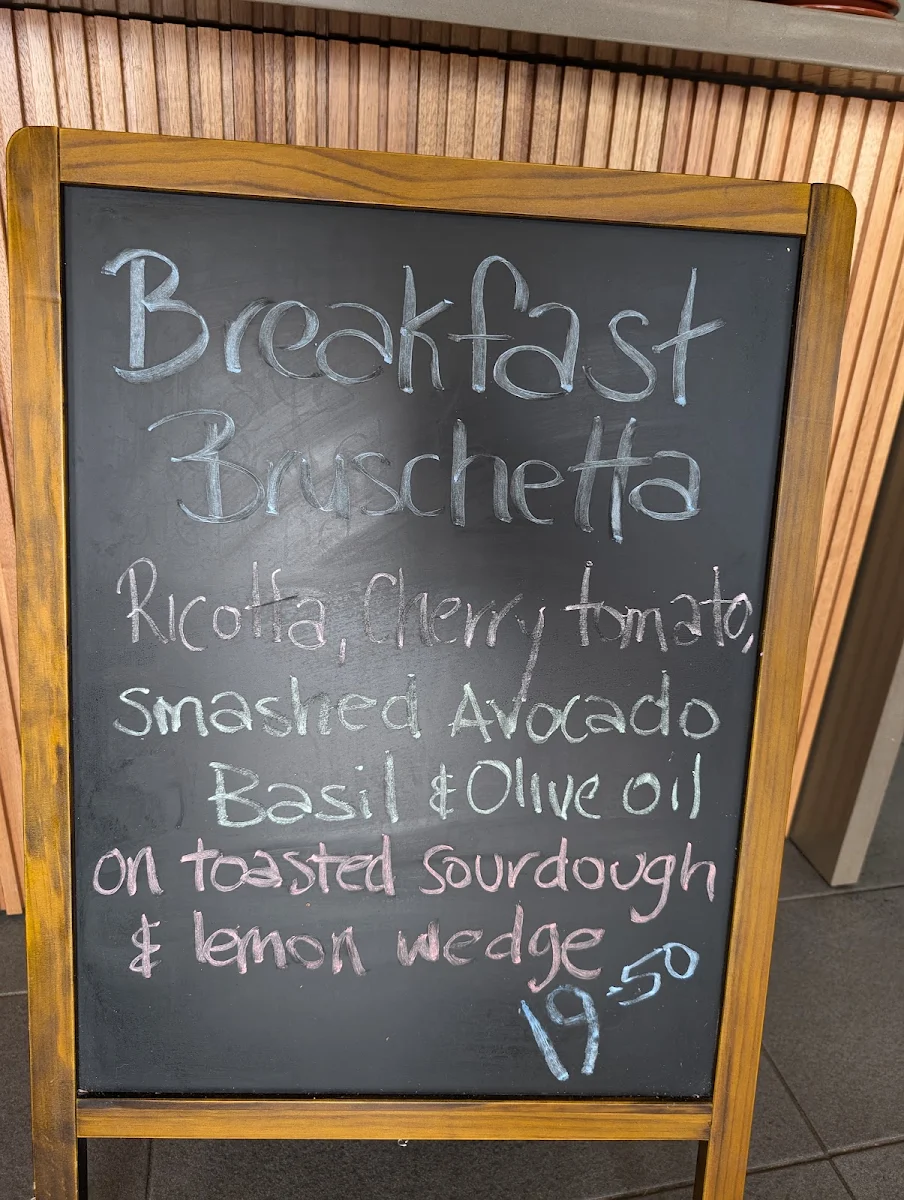 Breakfast
Bruschetta
Ricotta, Cherry tomato,
smashed Avocado
Basil & Olive oil
on toasted sourdough
& lemon wedge
19.50